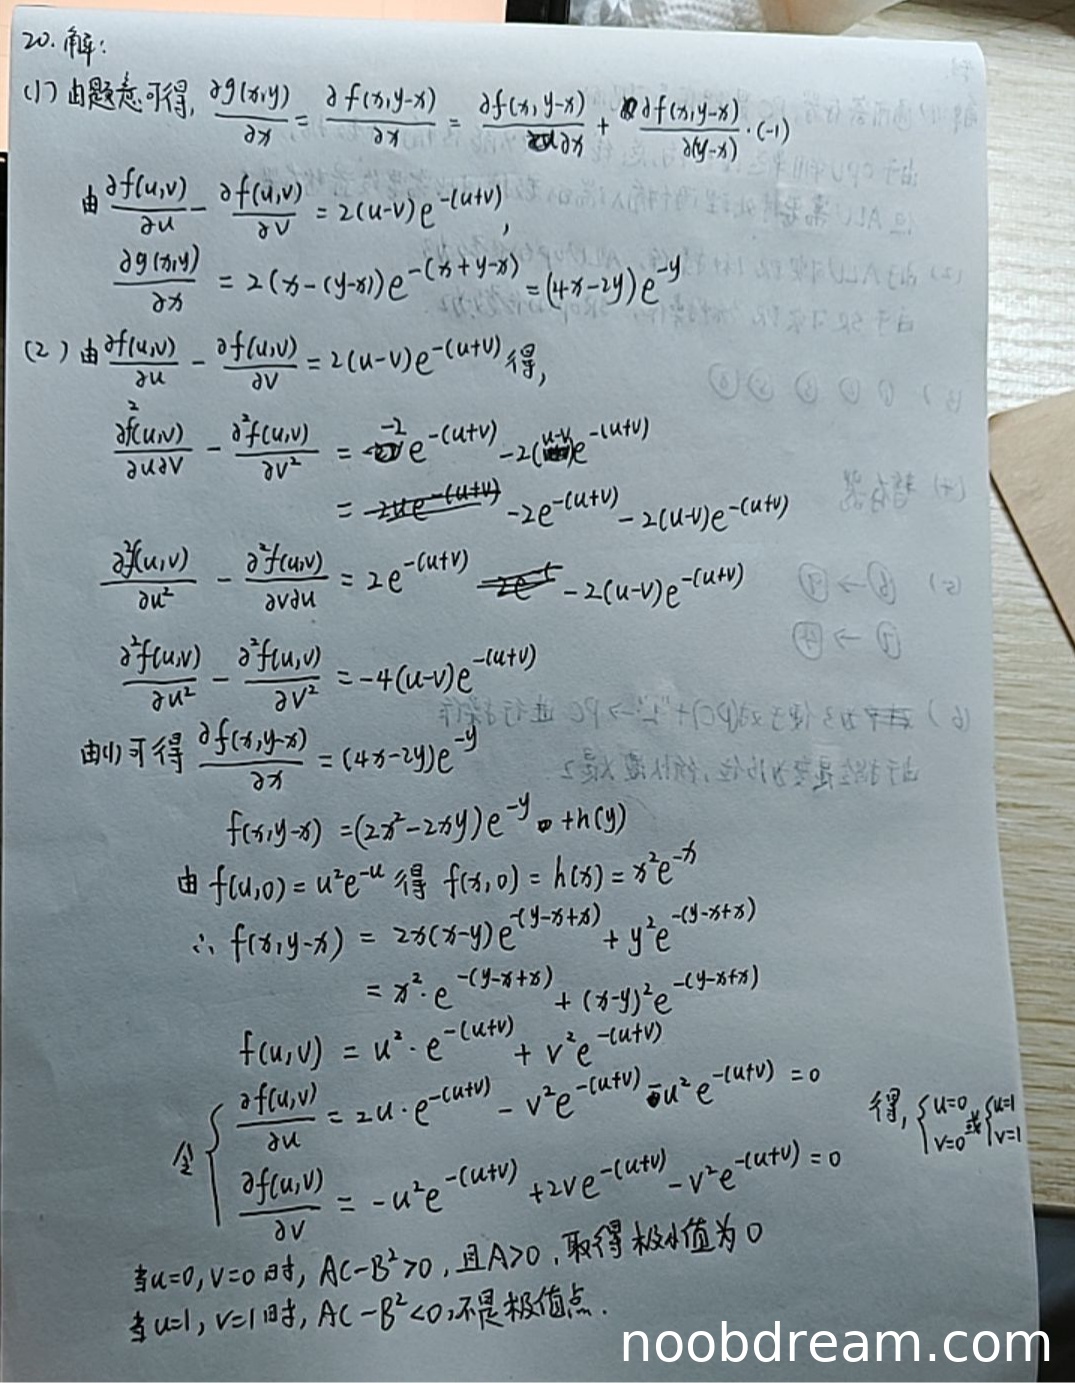 20. 解:
(1) 由题意可得, ∂g(x,y)/∂x = ∂f(x,y-x)/∂x = ∂f(x,y-x)/∂x + ∂f(x,y-x)/∂(y-x)·(-1)
由 ∂f(u,v)/∂u - ∂f(u,v)/∂v = 2(u-v)e^{-(u+v)},
∂g(x,y)/∂x = 2(x-(y-x))e^{-(x+y-x)} = (4x-2y)e^{-y}
(2) 由 ∂f(u,v)/∂u - ∂f(u,v)/∂v = 2(u-v)e^{-(u+v)} 得,
∂²f(u,v)/∂u∂v - ∂²f(u,v)/∂v² = -2e^{-(u+v)} - 2(u-v)e^{-(u+v)}
= -2e^{-(u+v)} - 2(u-v)e^{-(u+v)}
∂²f(u,v)/∂u² - ∂²f(u,v)/∂v∂u = 2e^{-(u+v)} - 2(u-v)e^{-(u+v)}
∂²f(u,v)/∂u² - ∂²f(u,v)/∂v² = -4(u-v)e^{-(u+v)}
由(1)可得 ∂f(x,y-x)/∂x = (4x-2y)e^{-y}
f(x,y-x) = (2x²-2xy)e^{-y} + h(y)
由 f(u,0) = u²e^{-u} 得 f(x,0) = h(x) = x²e^{-x}
∴ f(x,y-x) = 2x(x-y)e^{-(y-x+x)} + y²e^{-(y-x+x)}
= x²·e^{-(y-x+x)} + (x-y)²e^{-(y-x+x)}
f(u,v) = u²·e^{-(u+v)} + v²e^{-(u+v)}
令 { ∂f(u,v)/∂u = 2u·e^{-(u+v)} - v²e^{-(u+v)} - u²e^{-(u+v)} = 0 得, { u=0 v=0 或 { u=1 v=1
∂f(u,v)/∂v = -u²e^{-(u+v)} + 2ve^{-(u+v)} - v²e^{-(u+v)} = 0
当u=0, v=0时, AC-B²>0, 且A>0, 取得极小值为0
当u=1, v=1时, AC-B²<0, 不是极值点.
noobdream.com